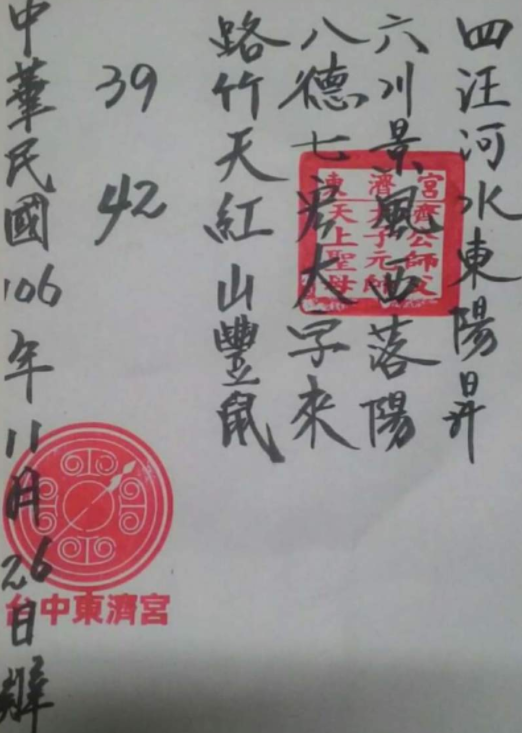 四汪河水東陽昇
六川景風西落陽
八德七君大字來
路竹天紅山豐鼠
39 42
中華民國106年11月26日
東濟宮
濟公師父
太子元帥
天上聖母
台中東濟宮